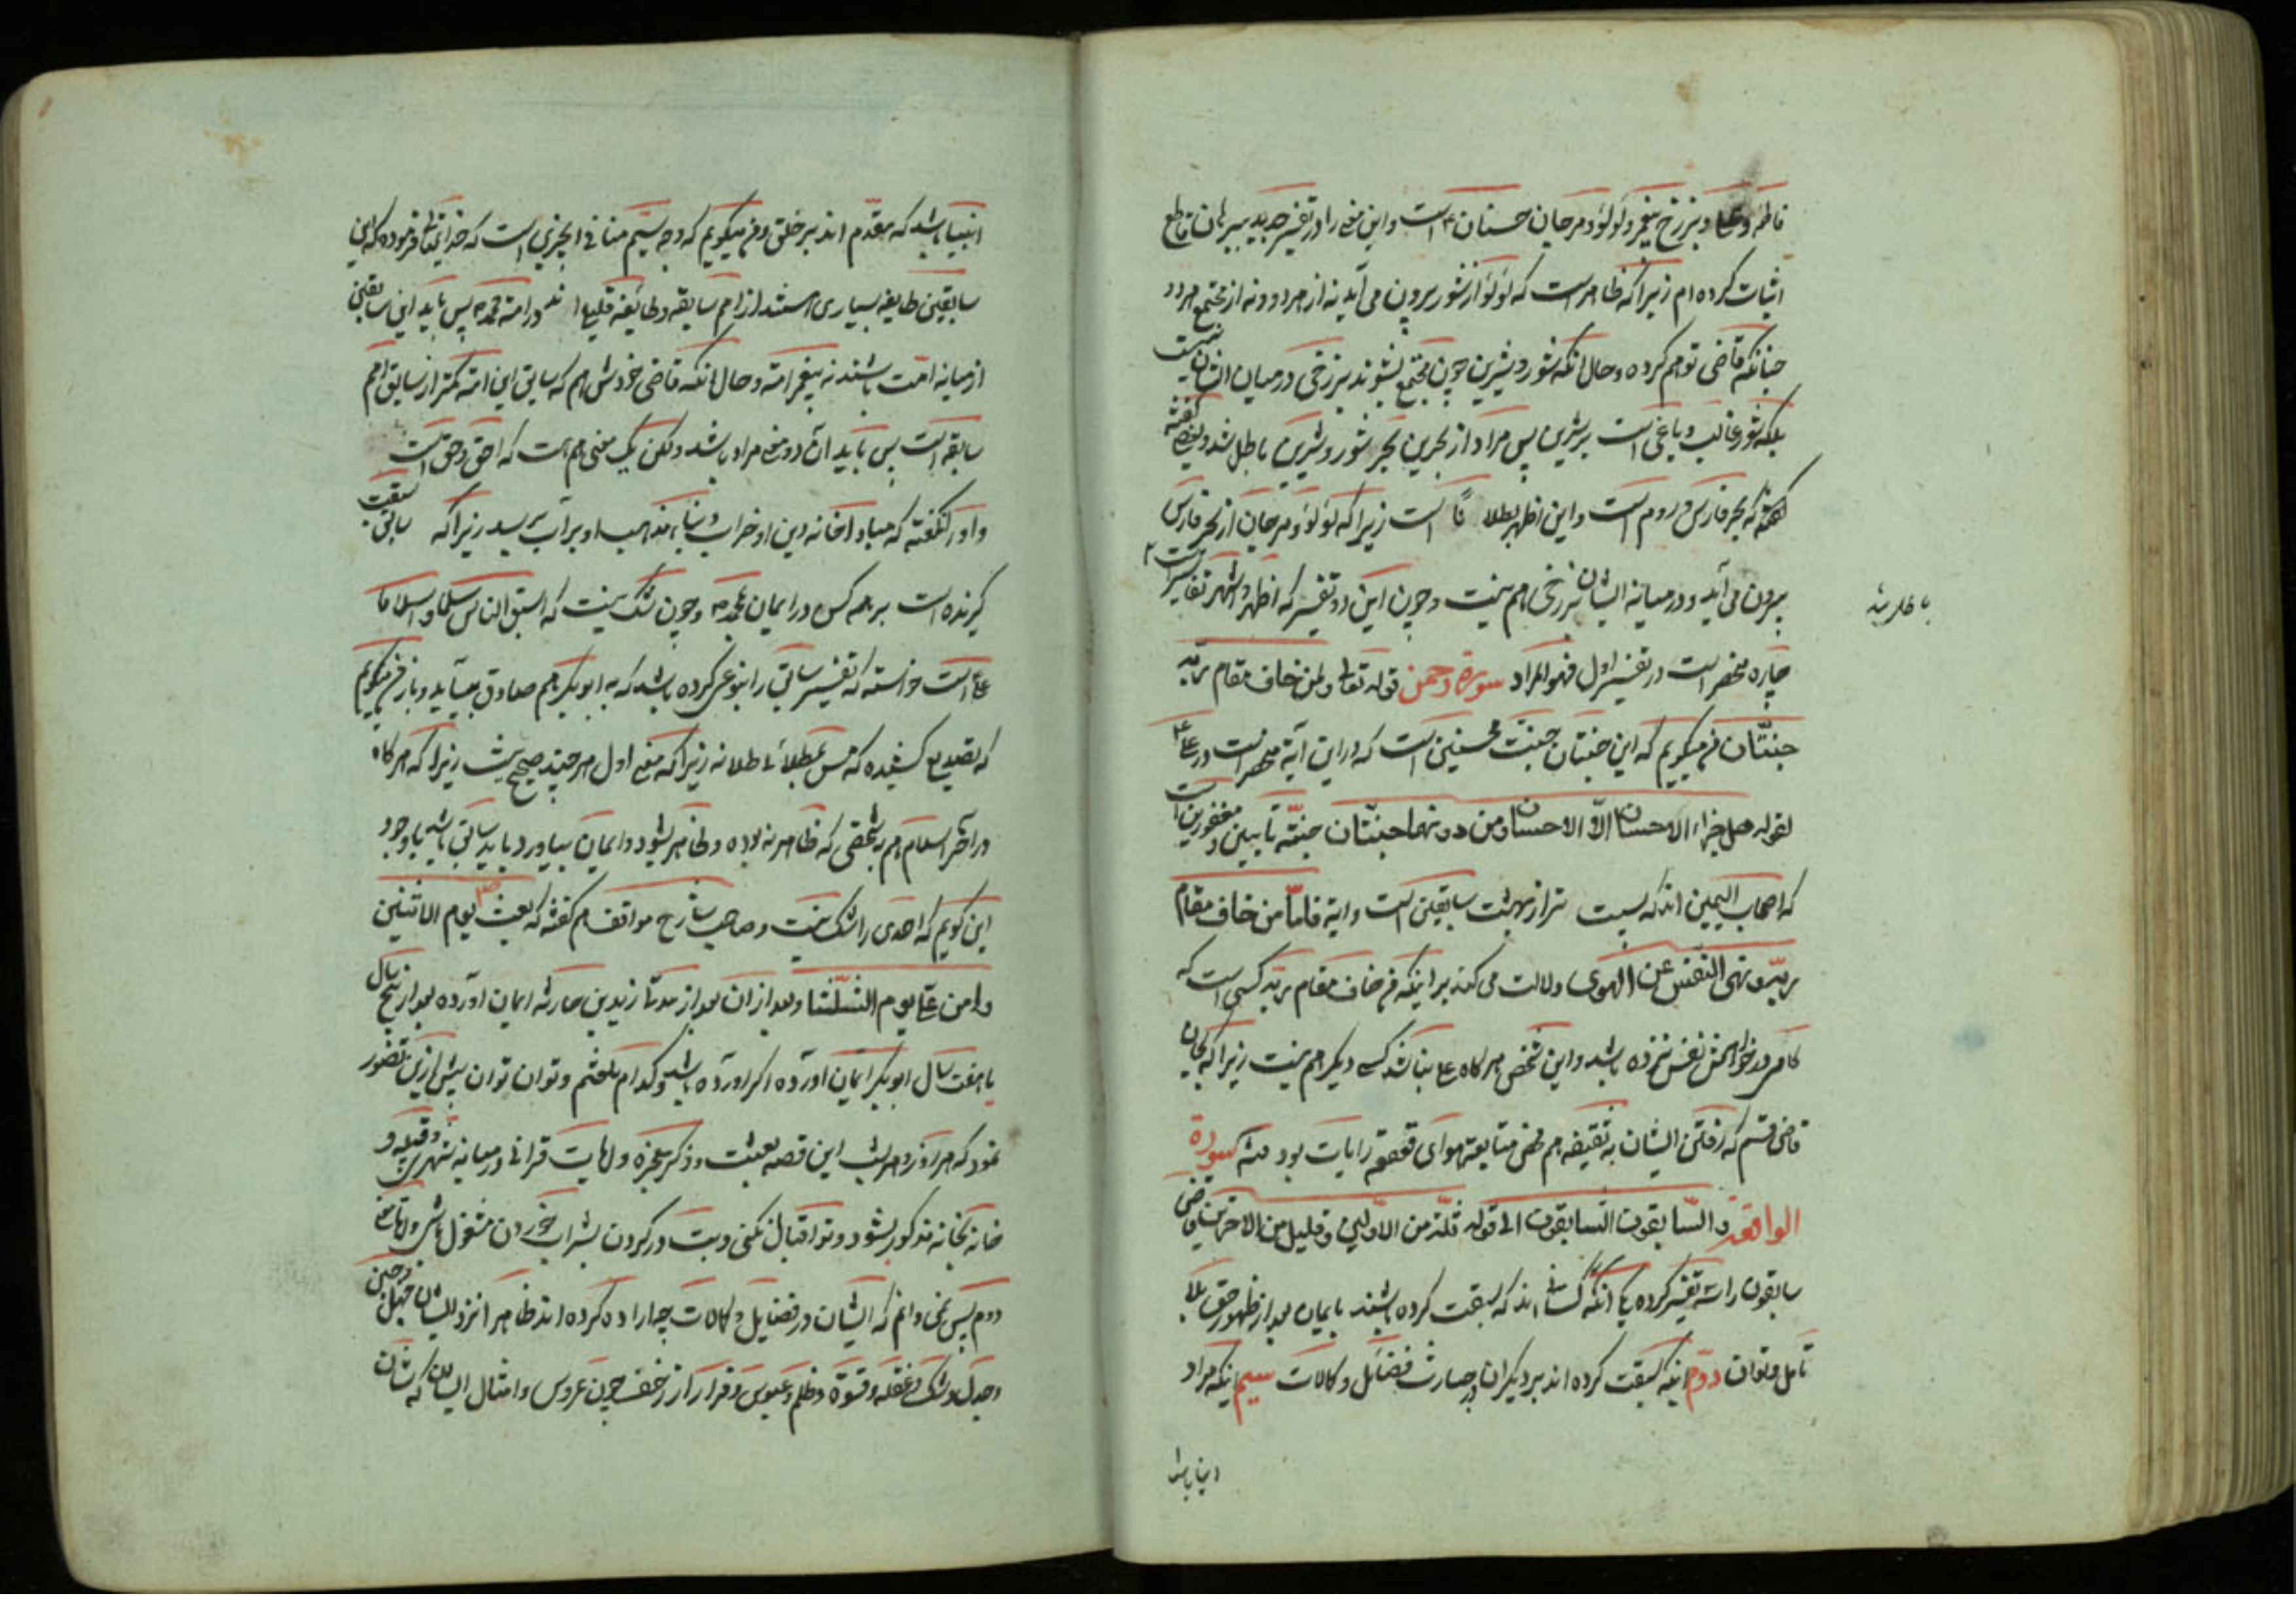 فاطمه و علی و برزخ پیغمبر و لؤلؤ و مرجان حسنان است و این معنی را در تفسیر جدید ببرهان قاطع
اثبات کرده‌ام زیرا که ظاهر است که لؤلؤ از شور بیرون می‌آید نه از هر دو و نه از مجتمع هر دو
چنانکه قاضی توهم کرده و حال آنکه شور و شیرین چون مجتمع بشوند برزخی در میان ایشان نیست
بلکه شور غالب و باغی است بر شیرین پس مراد از بحرین بحر شور و شیرین باطل شد و بعضی گفته
که بحر فارس و روم است و این اظهر است زیرا که لؤلؤ و مرجان از بحر فارس
بیرون می‌آید و در میانه ایشان برزخی هم نیست و چون این دو تفسیر که اظهر و اشهر تفاسیر است
باطل شد
چاره منحصر است در تفسیر اول فهو المراد سورة رحمن قوله تعالی ولمن خاف مقام ربه
جنتان فقیر میگویم که این جنتان جنت محسنین است که در این آیة منحصر است در علی
لقوله هل جزاء الاحسان الا الاحسان ومن دونهما جنتان جنة تابعین و مغفورین است
که اصحاب الیمین اند که پست تر از بهشت سابقین است و آیة فاما من خاف مقام
ربه ونهی النفس عن الهوی دلالت می‌کند بر اینکه من خاف مقام ربه کسی است که
کامی در خواهش نفس نزده باشد و این شخص هرگاه علی نباشد کسی دیگر هم نیست زیرا که بجان
قاضی قسم که رفتن ایشان به سقیفه هم محض متابعة هوای قعقعة رایات بود سورة
الواقعه والسابقون السابقون الی قوله ثلة من الاولین وقلیل من الاخرین قاضی
سابقون را سه تفسیر کرده یکی آنکه کسانی اند که سبقت کرده باشند بایمان بعد از ظهور حق بلا
تأمل و توان دوم آنکه سبقت کرده اند بر دیگران در حیازت فضائل و کمالات سیم آنکه مراد
انبیا باشد
انبیا باشد که مقدم اند بر خلق و من میگویم که وجه سیم منافی آنچیزی است که خدایتعالی فرموده که این
سابقین طایفه بسیاری هستند از امم سابقه و طائفه قلیل اند در امة محمد پس باید این سابقین
از میانه امت باشند نه پیغمبر امة و حال آنکه قاضی خودش هم که سابق این امة کمتر از سابق امم
سابقه است پس باید آن دو معنی مراد باشد ولکن یک معنی هم هست که احق و حق است
و او را نگفته که مبادا خانه دین او خراب و بنای مذهب او بر آب برسد زیرا که سابق سبقت
گیرنده است بر همه کس در ایمان بمحمد و چون شک نیست که اسبق الناس سلما و اسلاما
علی است خواسته که تفسیر سابق را بنوعی کرده باشد که به ابوبکر هم صادق بیاید و باز من میگویم
که تصدیع کشیده زیرا که معنی اول هر چند صحیح نیست زیرا که هرگاه
در آخر اسلام هم شخصی که ظاهر نبوده و ظاهر بشود و ایمان بیاورد باید سابق باشد با وجود
این گویم که احدی را شک نیست و صاحب شارح مواقف هم گفته که بعث یوم الاثنین
وامن علی یوم الثلثا و بعد از آن بعد از مدتی زید بن حارثه ایمان آورده بعد از پنج سال
یا هفت سال ابوبکر ایمان آورده اگر آورده باشد و کدام تلعثم و توان توان بیش از این تصور
نمود که هر روز و هر شب این قصه بعثت و ذکر معجزه و آیات قرآنی در میانه شهری و قبیله و
خانه بخانه مذکور بشود و تو اقبال نکنی و بت در گردن بشراب خوردن مشغول باشی و اما معنی
دوم پس نمی‌دانم که ایشان در فضایل و کمالات چه اراده کرده اند ظاهرا نزد ایشان جهل و جبن
وجدل و شک و غفله و قسوة و ظلم و عبوس و فرار از زحف چون عروس و امثال ایشان که شان